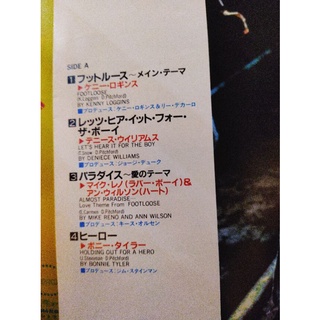 SIDE A
1 フットルース〜メイン・テーマ
▶ケニー・ロギンス
FOOTLOOSE
(K.Loggins, D.Pitchford)
BY KENNY LOGGINS
■プロデュース：ケニー・ロギンス&リー・デカーロ
2 レッツ・ヒア・イット・フォー・
ザ・ボーイ
▶デニース・ウイリアムス
LET'S HEAR IT FOR THE BOY
(T.Snow, D.Pitchford)
BY DENIECE WILLIAMS
■プロデュース：ジョージ・デューク
3 パラダイス〜愛のテーマ
▶マイク・レノ(ラバー・ボーイ)&
アン・ウィルソン(ハート)
ALMOST PARADISE—
Love Theme From FOOTLOOSE
(E.Carmen, D.Pitchford)
BY MIKE RENO AND ANN WILSON
■プロデュース：キース・オルセン
4 ヒーロー
▶ボニー・タイラー
HOLDING OUT FOR A HERO
(J.Steinman, D.Pitchford)
BY BONNIE TYLER
■プロデュース：ジム・スタインマン